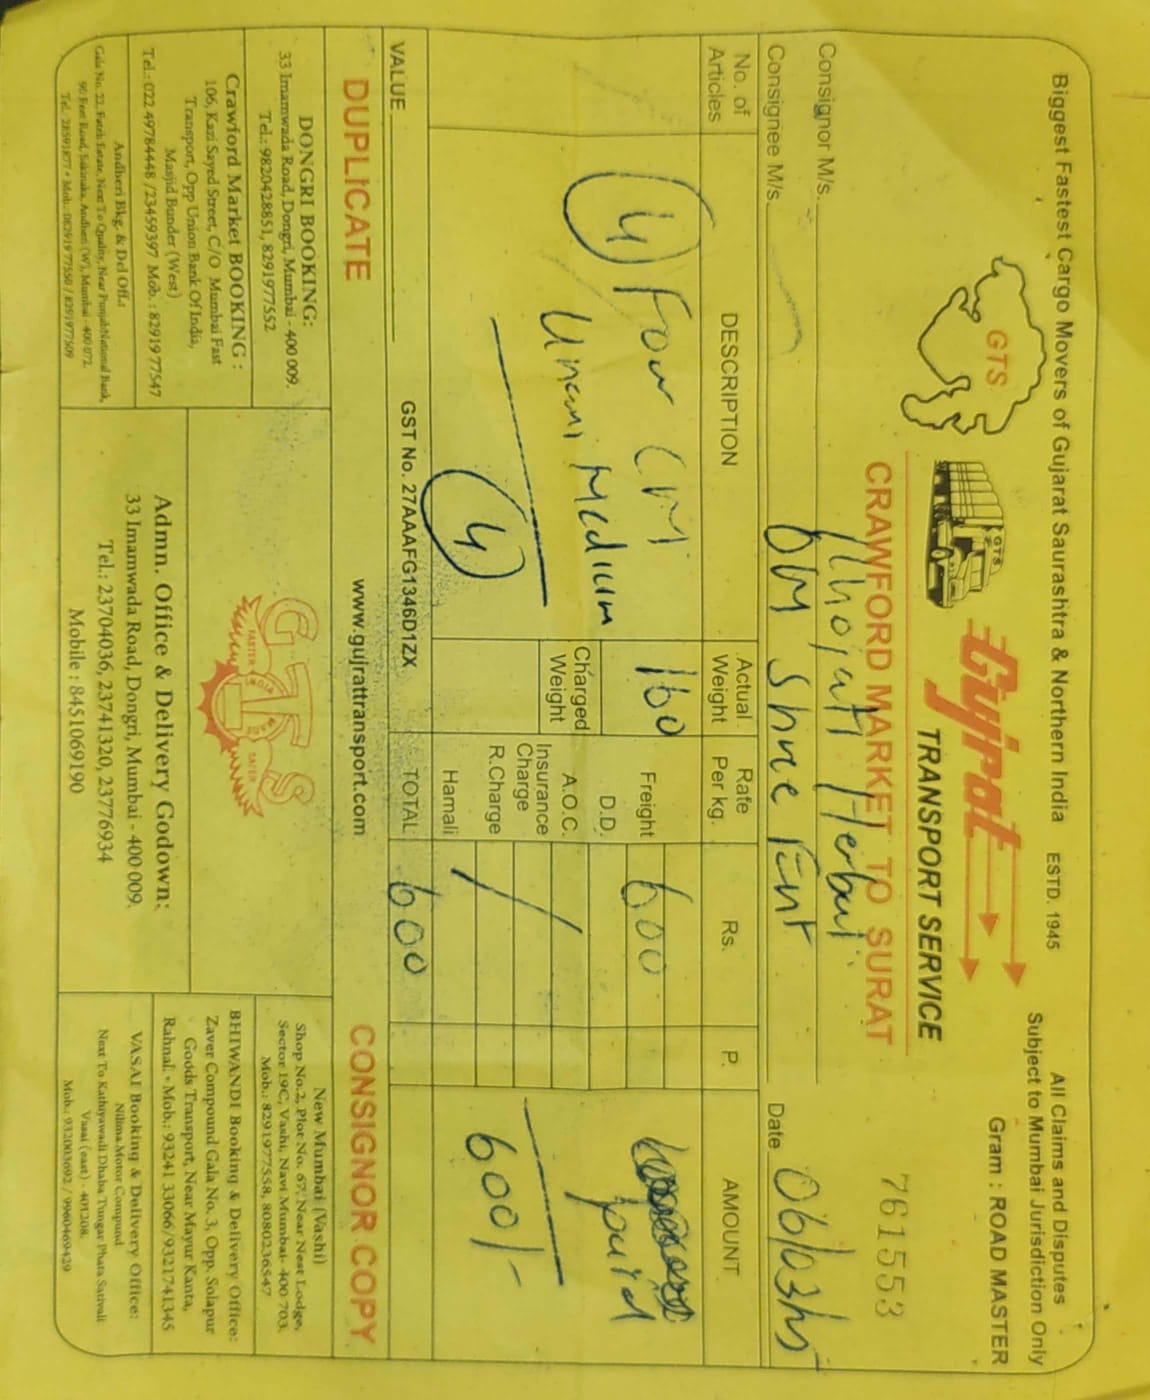 Biggest Fastest Cargo Movers of Gujarat Saurashtra & Northern India ESTD. 1945
All Claims and Disputes
Subject to Mumbai Jurisdiction Only
Gram : ROAD MASTER
GTS
GTS
Gujrat
TRANSPORT SERVICE
CRAWFORD MARKET TO SURAT
761553
Consignor M/s. Herbal
Consignee M/s. Shree
Date 06/03/
No. of Articles
DESCRIPTION
Actual Weight
Rate Per kg.
Rs.
P.
AMOUNT
(4) Four
160
Freight 600
paid
Medium
Charged Weight
D.D.
A.O.C.
Insurance Charge
R.Charge
Hamali
(4)
600/-
VALUE
GST No. 27AAAFG1346D1ZX
TOTAL 600
DUPLICATE
www.gujrattransport.com
CONSIGNOR COPY
DONGRI BOOKING:
33 Imamwada Road, Dongri, Mumbai - 400 009.
Tel.: 9820428851, 8291977552
Crawford Market BOOKING :
106, Kazi Sayed Street, C/O Mumbai Fast
Transport, Opp Union Bank Of India,
Masjid Bunder (West)
Tel.: 022 49784448 /23459397 Mob. : 82919 77547
Andheri Bkg. & Del Off.:
Gala No. 22, Fateh Estate, Next To Quality, Near Punjab National Bank,
90 Feet Road, Sakinaka, Andheri (W), Mumbai - 400 072.
Tel. 28591877 • Mob.: 08291977550 / 8291977509
GTS
FASTER
INDIA
SAFER
Admn. Office & Delivery Godown:
33 Imamwada Road, Dongri, Mumbai - 400 009.
Tel.: 23704036, 23741320, 23776934
Mobile : 8451069190
New Mumbai (Vashi)
Shop No.2, Plot No. 67, Near Nest Lodge,
Sector 19C, Vashi, Navi Mumbai- 400 703.
Mob.: 8291977558, 8080236547
BHIWANDI Booking & Delivery Office:
Zaver Compound Gala No. 3, Opp. Solapur
Goods Transport, Near Mayur Kanta,
Rahnal. • Mob.: 93241 33066/9321741345
VASAI Booking & Delivery Office:
Nilima Motor Compund
Next To Kathiyawadi Dhaba Tungar Phata Sativali
Vasai (east) - 401208.
Mob.: 932003692 / 9960469429